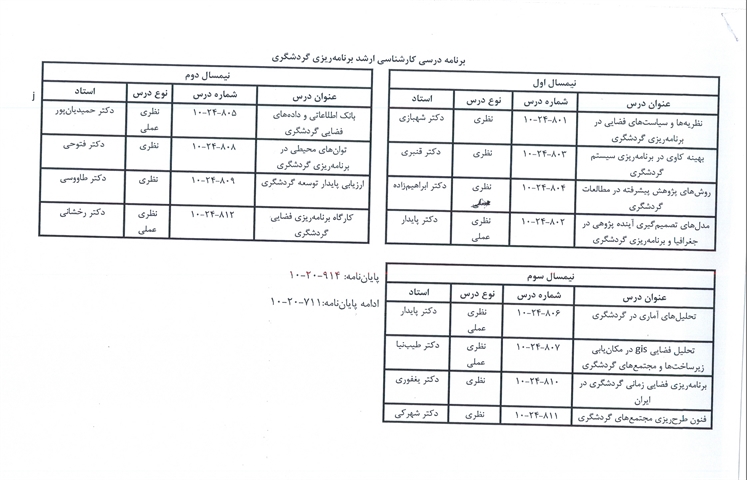 برنامه درسی کارشناسی ارشد برنامه‌ریزی گردشگری
نیمسال اول
عنوان درس شماره درس نوع درس استاد
نظریه‌ها و سیاست‌های فضایی در برنامه‌ریزی گردشگری ۱۰-۲۴-۸۰۱ نظری دکتر شهبازی
بهینه کاوی در برنامه‌ریزی سیستم گردشگری ۱۰-۲۴-۸۰۳ نظری دکتر قنبری
روش‌های پژوهش پیشرفته در مطالعات گردشگری ۱۰-۲۴-۸۰۴ نظری دکتر ابراهیم‌زاده
مدل‌های تصمیم‌گیری آینده پژوهی در جغرافیا و برنامه‌ریزی گردشگری ۱۰-۲۴-۸۰۲ نظری عملی دکتر پایدار
نیمسال دوم
عنوان درس شماره درس نوع درس استاد
بانک اطلاعاتی و داده‌های فضایی گردشگری ۱۰-۲۴-۸۰۵ نظری عملی دکتر حمیدیان‌پور
توان‌های محیطی در برنامه‌ریزی گردشگری ۱۰-۲۴-۸۰۸ نظری دکتر فتوحی
ارزیابی پایدار توسعه گردشگری ۱۰-۲۴-۸۰۹ نظری دکتر طاووسی
کارگاه برنامه‌ریزی فضایی گردشگری ۱۰-۲۴-۸۱۲ نظری عملی دکتر رخشانی
j
نیمسال سوم
عنوان درس شماره درس نوع درس استاد
تحلیل‌های آماری در گردشگری ۱۰-۲۴-۸۰۶ نظری عملی دکتر پایدار
تحلیل فضایی gis در مکان‌یابی زیرساخت‌ها و مجتمع‌های گردشگری ۱۰-۲۴-۸۰۷ نظری عملی دکتر طیب‌نیا
برنامه‌ریزی فضایی زمانی گردشگری در ایران ۱۰-۲۴-۸۱۰ نظری دکتر یغفوری
فنون طرح‌ریزی مجتمع‌های گردشگری ۱۰-۲۴-۸۱۱ نظری دکتر شهرکی
پایان‌نامه: ۹۱۴-۲۰-۱۰
ادامه پایان‌نامه:۷۱۱-۲۰-۱۰